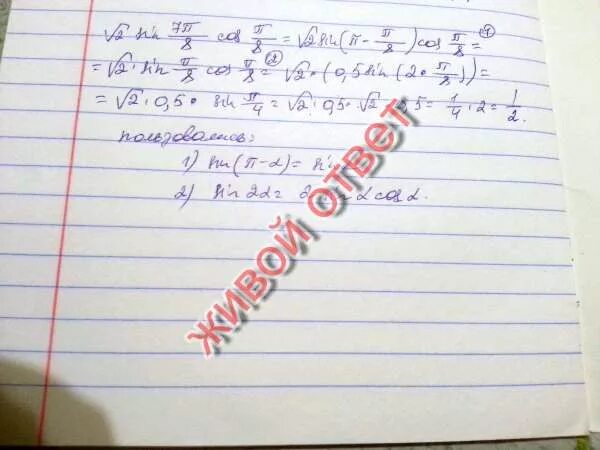 √2 sin 7π/8 cos π/8 = √2 sin(π - π/8) cos π/8 = ①
= √2 · sin π/8 cos π/8 ②= √2 · (0,5 sin(2 · π/8)) =
= √2 · 0,5 · sin π/4 = √2 · 0,5 · √2 · 0,5 = 1/4 · 2 = 1/2.
пользовались:
1) sin(π-α) = sin
2) sin 2α = 2 α cos α.
ЖИВОЙ ОТВЕТ